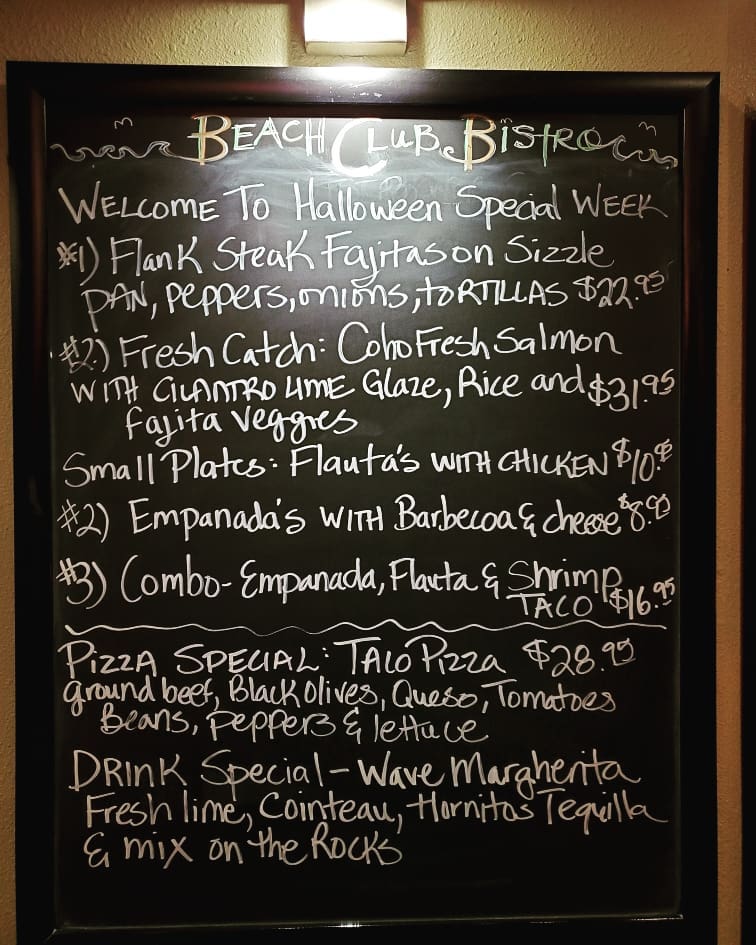 BEACH CLUB BISTRO
WELCOME To Halloween Special WEEK
#1) Flank Steak Fajitas on Sizzle
PAN, peppers, onions, toRTILLAS $22.95
#2) Fresh Catch: Coho Fresh Salmon
WITH CILANTRO LIME Glaze, Rice and $31.95
fajita veggies
Small Plates: Flauta's WITH CHICKEN $10.
#2) Empanada's WITH Barbecoa & cheese $8.95
#3) Combo- Empanada, Flauta & Shrimp
TACO $16.95
PIZZA SPECIAL: TACO PIZZA $28.95
ground beef, Black Olives, Queso, Tomatoes
Beans, peppers & lettuce
DRINK Special - Wave Margherita
Fresh lime, Cointeau, Hornitos Tequilla
& mix on the Rocks